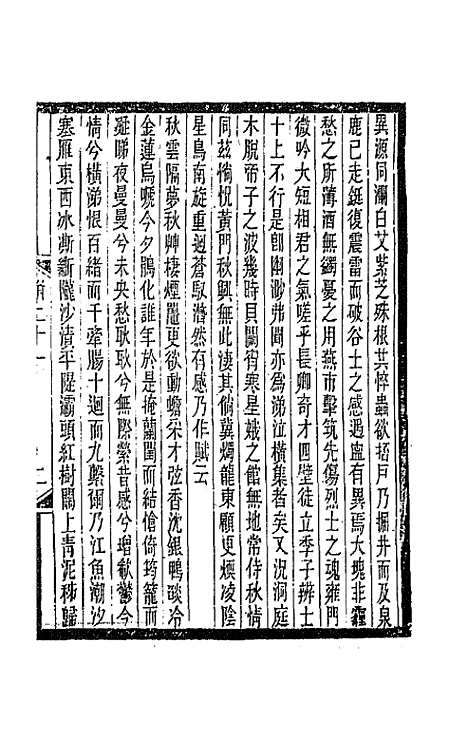 異源同瀾白艾紫芝殊根其悴蟲欲招戶乃掘井而及泉
鹿已走鋌復震雷而破谷士之感遇寧有異焉大塊非
愁之所薄酒無蠲憂之用燕市擊筑先傷烈士之魂雍門
微吟大短相君之氣嗟乎長卿奇才四壁徒立季子辨士
十上不行是卽幽渺弗聞亦爲涕泣橫集者矣又況洞庭
木脫帝子之波幾時貝闕宵寒星娥之館無地常侍秋情
同茲惝怳黃門秋興無此淒其倘冀燭龍東顧更煗凌陰
星鳥南旋重迴蒼馭潸然有感乃作賦云
秋雲隔夢秋艸棲煙鼂更欲動蟾采才弦香沈銀鴨䤃冷
金蓮烏嗁今夕鵑化誰年於是掩蘭閨而結愴倚筠籠而
延睇夜曼曼兮未央愁耿耿兮無際縈昔感兮增欷鬱今
情兮橫涕恨百緒而千牽腸十迴而九繫爾乃江魚潮汐
塞雁東西冰澌斷隴沙淸平隄灞頭紅樹關上青泥秭歸
二十一